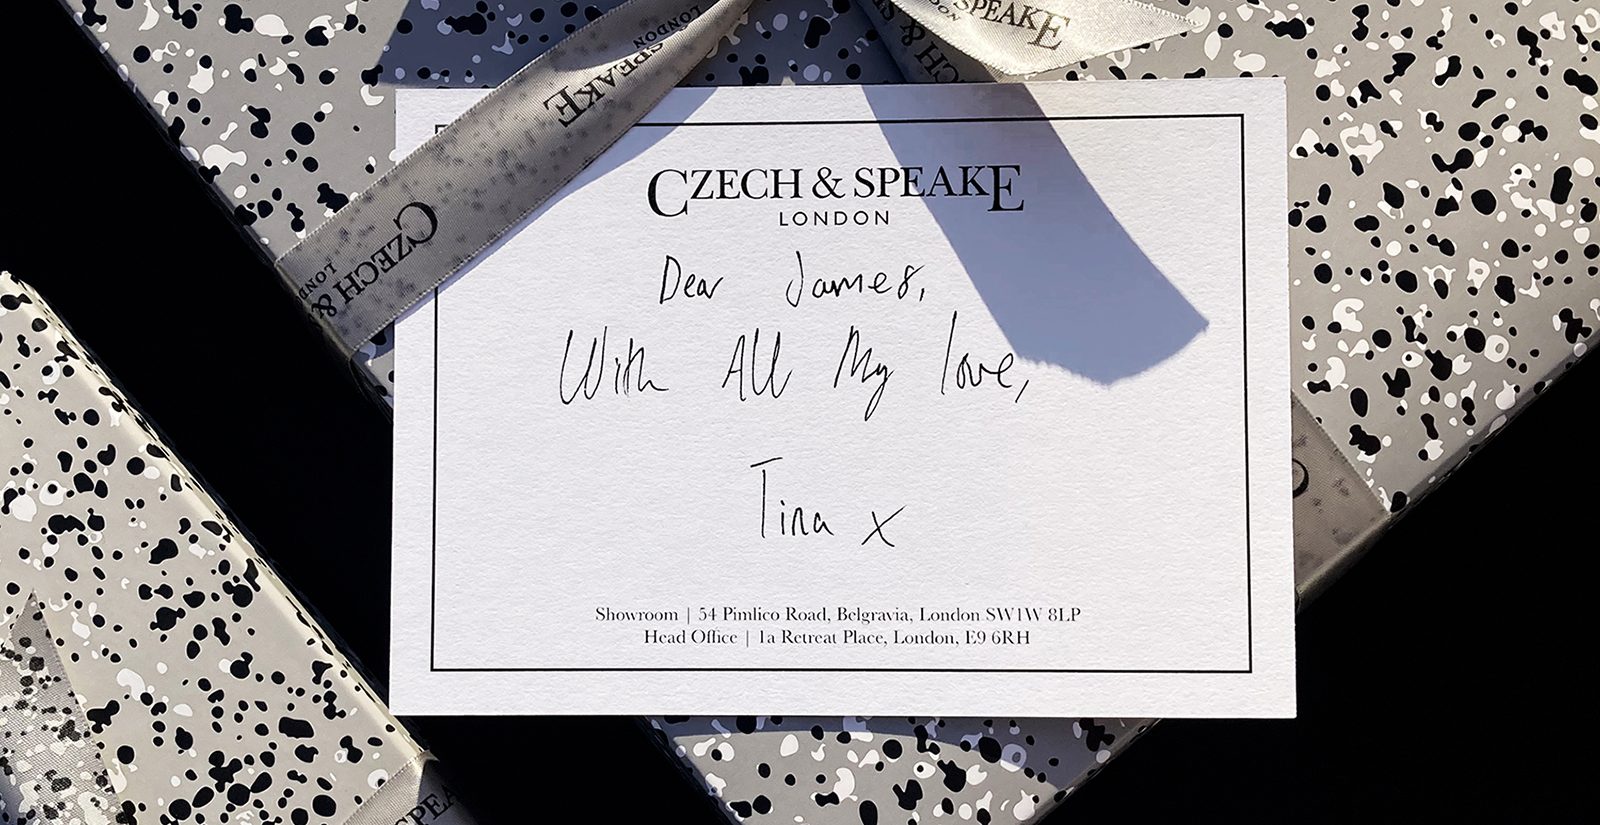 CZECH & SPEAKE
LONDON
Dear James,
With All My love,
Tina x
Showroom | 54 Pimlico Road, Belgravia, London SW1W 8LP
Head Office | 1a Retreat Place, London, E9 6RH
SPEAKE
LONDON
CZECH &
LOND
CH & SP
SPEAKE
DON
SPEA